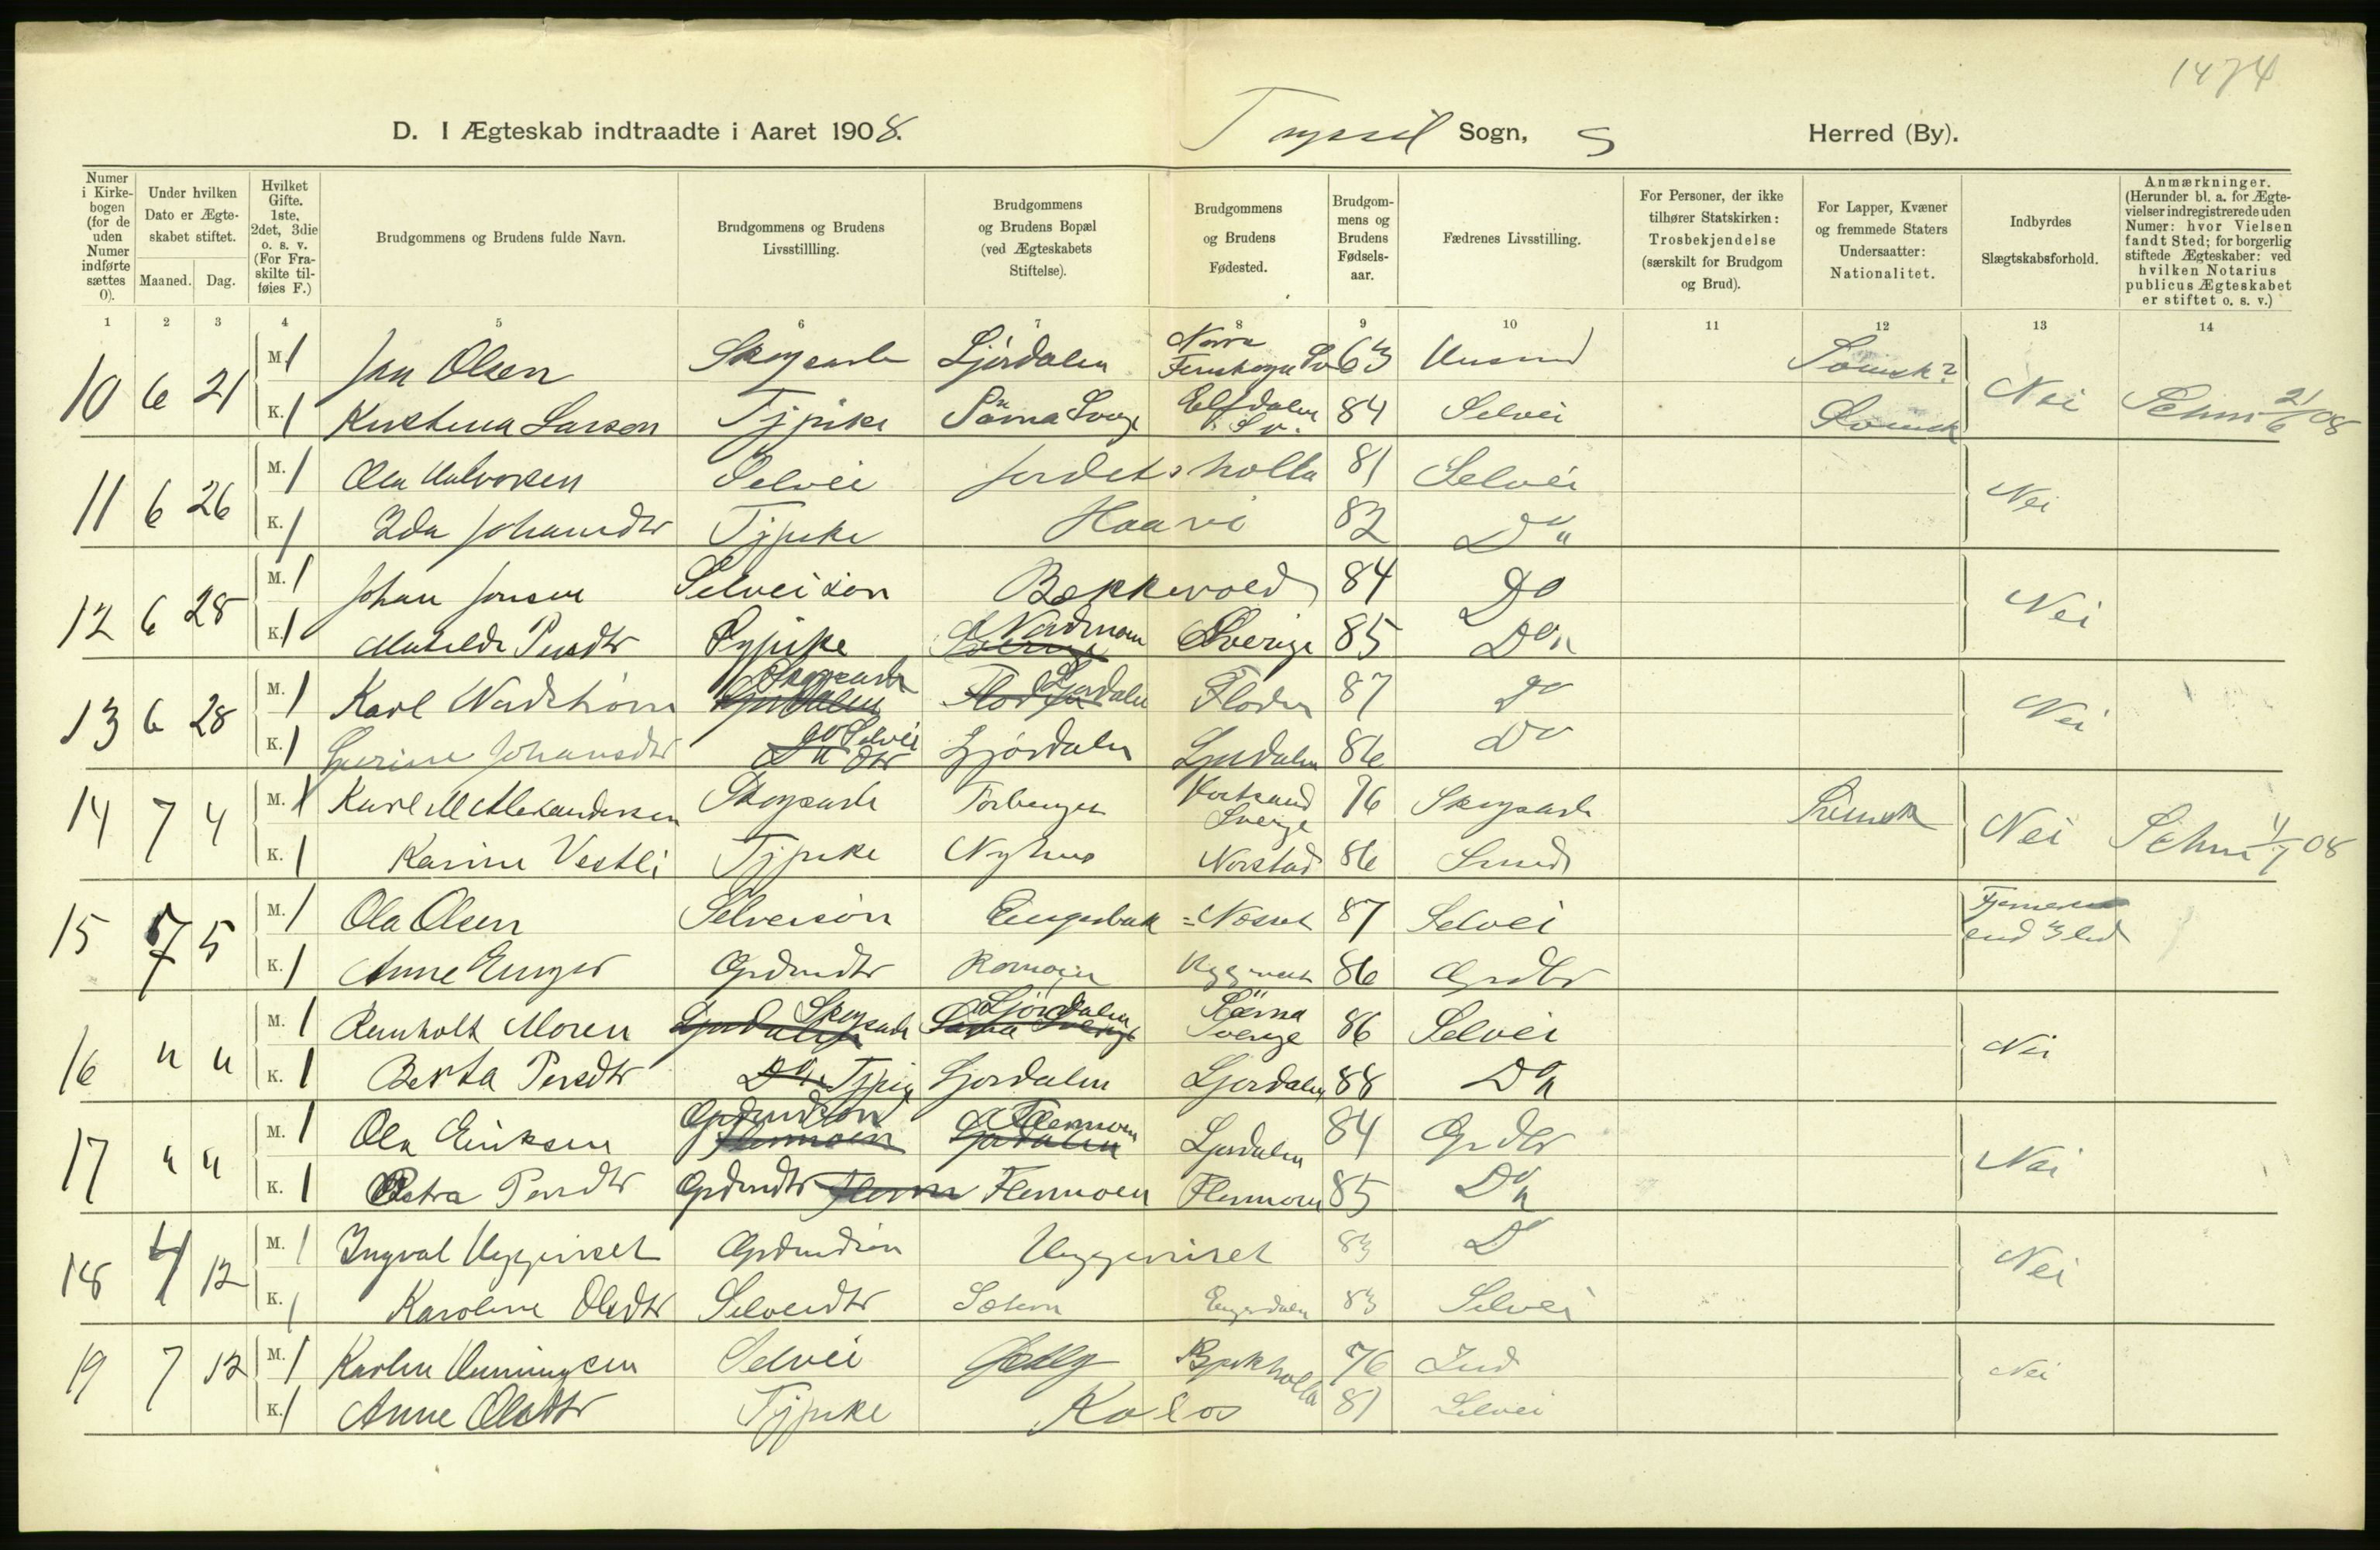 1474
D. I Ægteskab indtraadte i Aaret 1908. Trysil Sogn, Herred (By).
Numer i Kirkebogen (for de uden Numer indførte sættes 0).
Under hvilken Dato er Ægteskabet stiftet.
Maaned. Dag.
Hvilket Gifte. 1ste, 2det, 3die o. s. v. (For Fraskilte tilføies F.)
Brudgommens og Brudens fulde Navn.
Brudgommens og Brudens Livsstillling.
Brudgommens og Brudens Bopæl (ved Ægteskabets Stiftelse).
Brudgommens og Brudens Fødested.
Brudgommens og Brudens Fødselsaar.
Fædrenes Livsstilling.
For Personer, der ikke tilhører Statskirken: Trosbekjendelse (særskilt for Brudgom og Brud).
For Lapper, Kvæner og fremmede Staters Undersaatter: Nationalitet.
Indbyrdes Slægtskabsforhold.
Anmærkninger. (Herunder bl. a. for Ægtevielser indregistrerede uden Numer: hvor Vielsen fandt Sted; for borgerlig stiftede Ægteskaber: ved hvilken Notarius publicus Ægteskabet er stiftet o. s. v.)
1 2 3 4 5 6 7 8 9 10 11 12 13 14
10 6 21 M. 1 Jan Olsen Skogsarb Ljørdalen Norra Finskoga Sv 63 Husmd Svensk? Nei 21/6 08
K. 1 Kristina Larson Tjpike Särna Sverge Elfdalen Sv. 84 Selvei Svensk
11 6 26 M. 1 Ola Halvorsen Selvei Jordetsholla 81 Selvei Nei
K. 1 Ida Johansdtr Tjpike Haavi 82 Do
12 6 28 M. 1 Johan Jonsen Selveiesøn Bækkevold 84 Do Nei
K. 1 Matilde Persdtr Tjpike Nordmoen Sverige 85 Do
13 6 28 M. 1 Karl Nordstrøm Skogsarb Ljørdalen Floden 87 Do Nei
K. 1 Gurine Johansdtr Selvei Dtr Ljørdalen Ljørdalen 86 Do
14 7 4 M. 1 Karl M Aleksandersen Skogsarb Torberget Sverge 76 Skogsarb Svensk Nei 4/7 08
K. 1 Karine Vestli Tjpike Nyhus Norstad 86 Smed
15 7 5 M. 1 Ola Olsen Selveiesøn Engerbak = Nosset 87 Selvei Fjernere end 3 led
K. 1 Anne Enger Grdmdtr Romoen 86 Grdbr
16 " " M. 1 Reinholt Moren Skogsarb Ljørdalen Särna Sverge 86 Selvei Nei
K. 1 Berta Persdtr Tjpig Ljørdalen Ljørdalen 88 Do
17 " " M. 1 Ola Eriksen Grdmdsøn Flermoen Ljørdalen 84 Grdbr Nei
K. 1 Petra Persdtr Grdmdtr Flermoen Flermoen 85 Do
18 7 12 M. 1 Ingval Uggerset Grdmdsøn Uggerset 83 Do Nei
K. 1 Karoline Olsdtr Selveidtr Engerdalen 83 Selvei
19 7 12 M. 1 Karlen Henningsen Selvei Bjerkholla 76 Ind Nei
K. 1 Anne Olsdtr Tjpike Kolos 81 Selvei